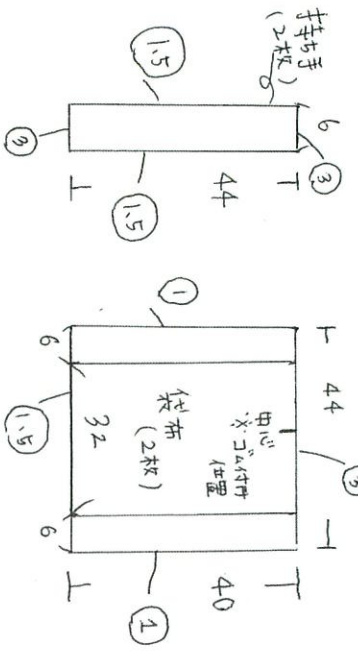 持ち手
(2枚)
1.5
6
③
③
44
1.5
①
44
③
6
中心
※ゴム付け
位置
袋布
(2枚)
32
1.5
6
40
①